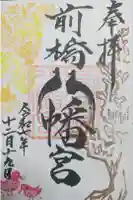 奉拝
前橋八幡宮
令和六年
十二月十九日